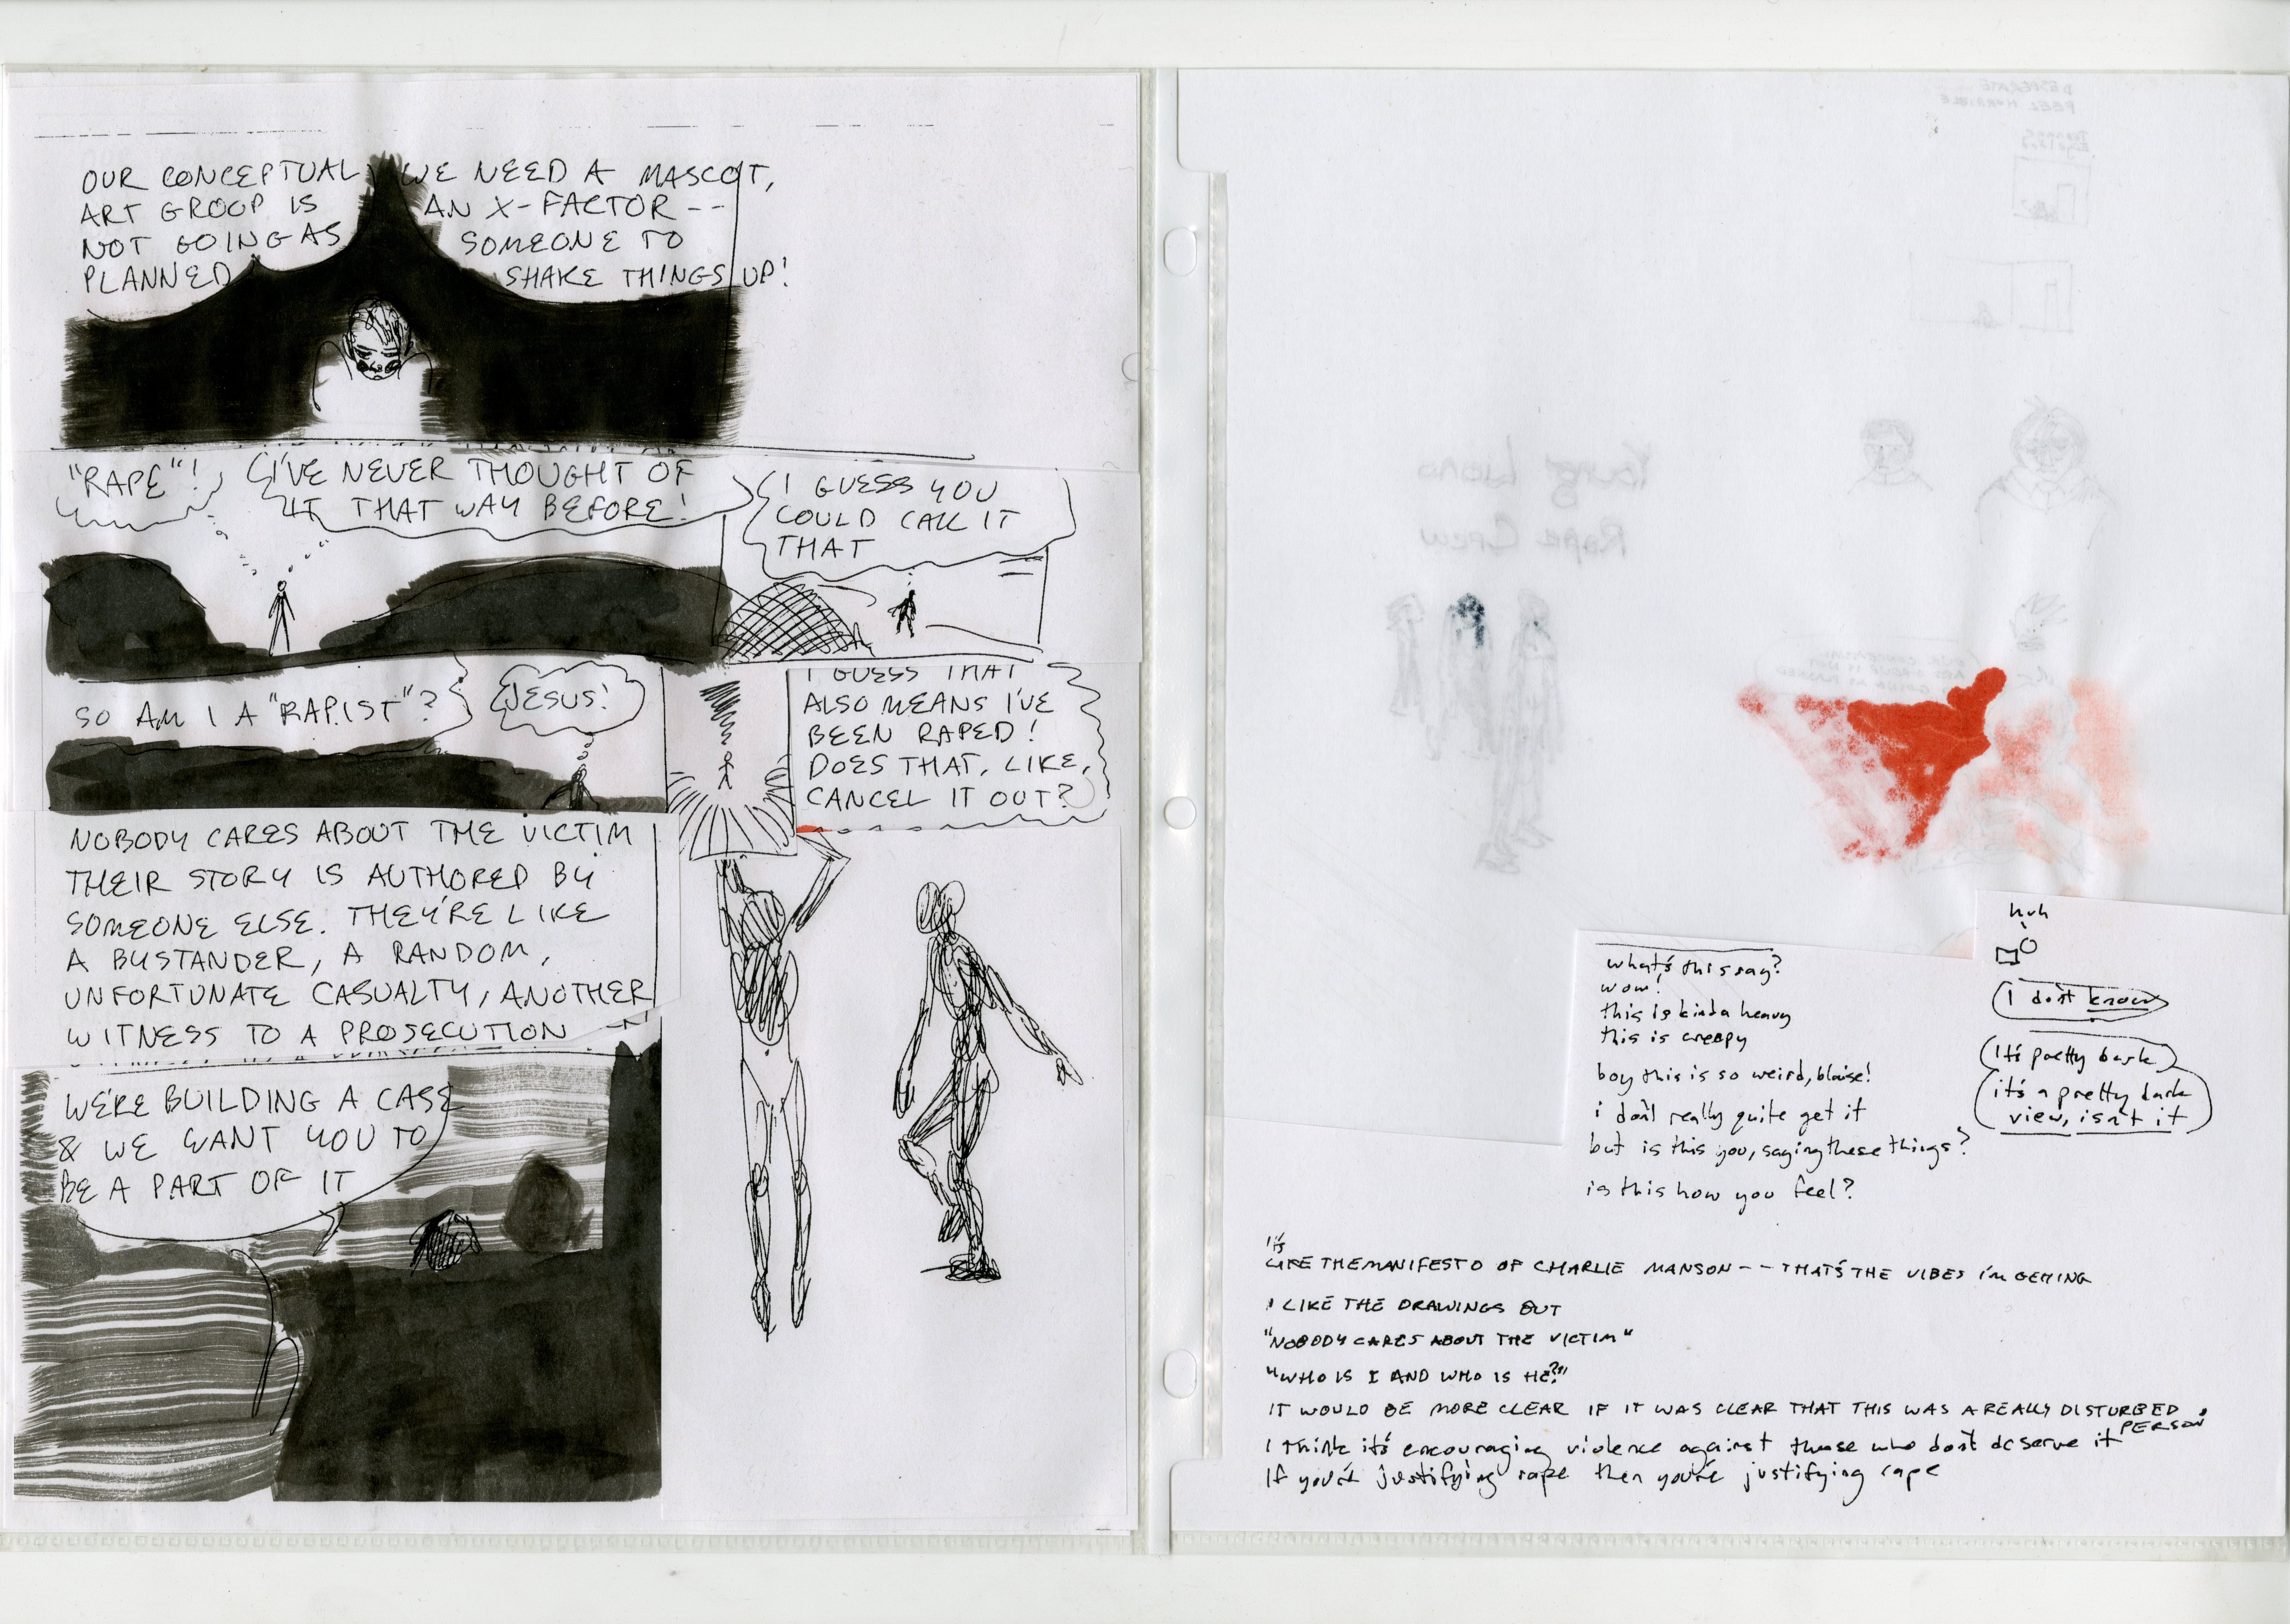 OUR CONCEPTUAL
ART GROUP IS
NOT GOING AS
PLANNED
WE NEED A MASCOT,
AN X-FACTOR--
SOMEONE TO
SHAKE THINGS UP!
"RAPE"!
I'VE NEVER THOUGHT OF
IT THAT WAY BEFORE!
I GUESS YOU
COULD CALL IT
THAT
SO AM I A "RAPIST"?
JESUS!
I GUESS THAT
ALSO MEANS I'VE
BEEN RAPED!
DOES THAT, LIKE,
CANCEL IT OUT?
NOBODY CARES ABOUT THE VICTIM
THEIR STORY IS AUTHORED BY
SOMEONE ELSE. THEY'RE LIKE
A BYSTANDER, A RANDOM,
UNFORTUNATE CASUALTY, ANOTHER
WITNESS TO A PROSECUTION
WE'RE BUILDING A CASE
& WE WANT YOU TO
BE A PART OF IT
DESPERATE
FEEL HORRIBLE
Young Lions
Rape Crew
OUR CONCEPTUAL
ART GROUP IS NOT
GOING AS PLANNED
huh
I don't know
It's pretty dark
it's a pretty dark
view, isn't it
what's this say?
wow!
this is kinda heavy
this is creepy
boy this is so weird, blaise!
i don't really quite get it
but is this you, saying these things?
is this how you feel?
It's
LIKE THE MANIFESTO OF CHARLIE MANSON -- THAT'S THE VIBES I'M GETTING
I LIKE THE DRAWINGS BUT
"NOBODY CARES ABOUT THE VICTIM"
"WHO IS I AND WHO IS HE?"
IT WOULD BE MORE CLEAR IF IT WAS CLEAR THAT THIS WAS A REALLY DISTURBED
PERSON
I think it's encouraging violence against those who don't deserve it
If you're justifying rape then you're justifying rape